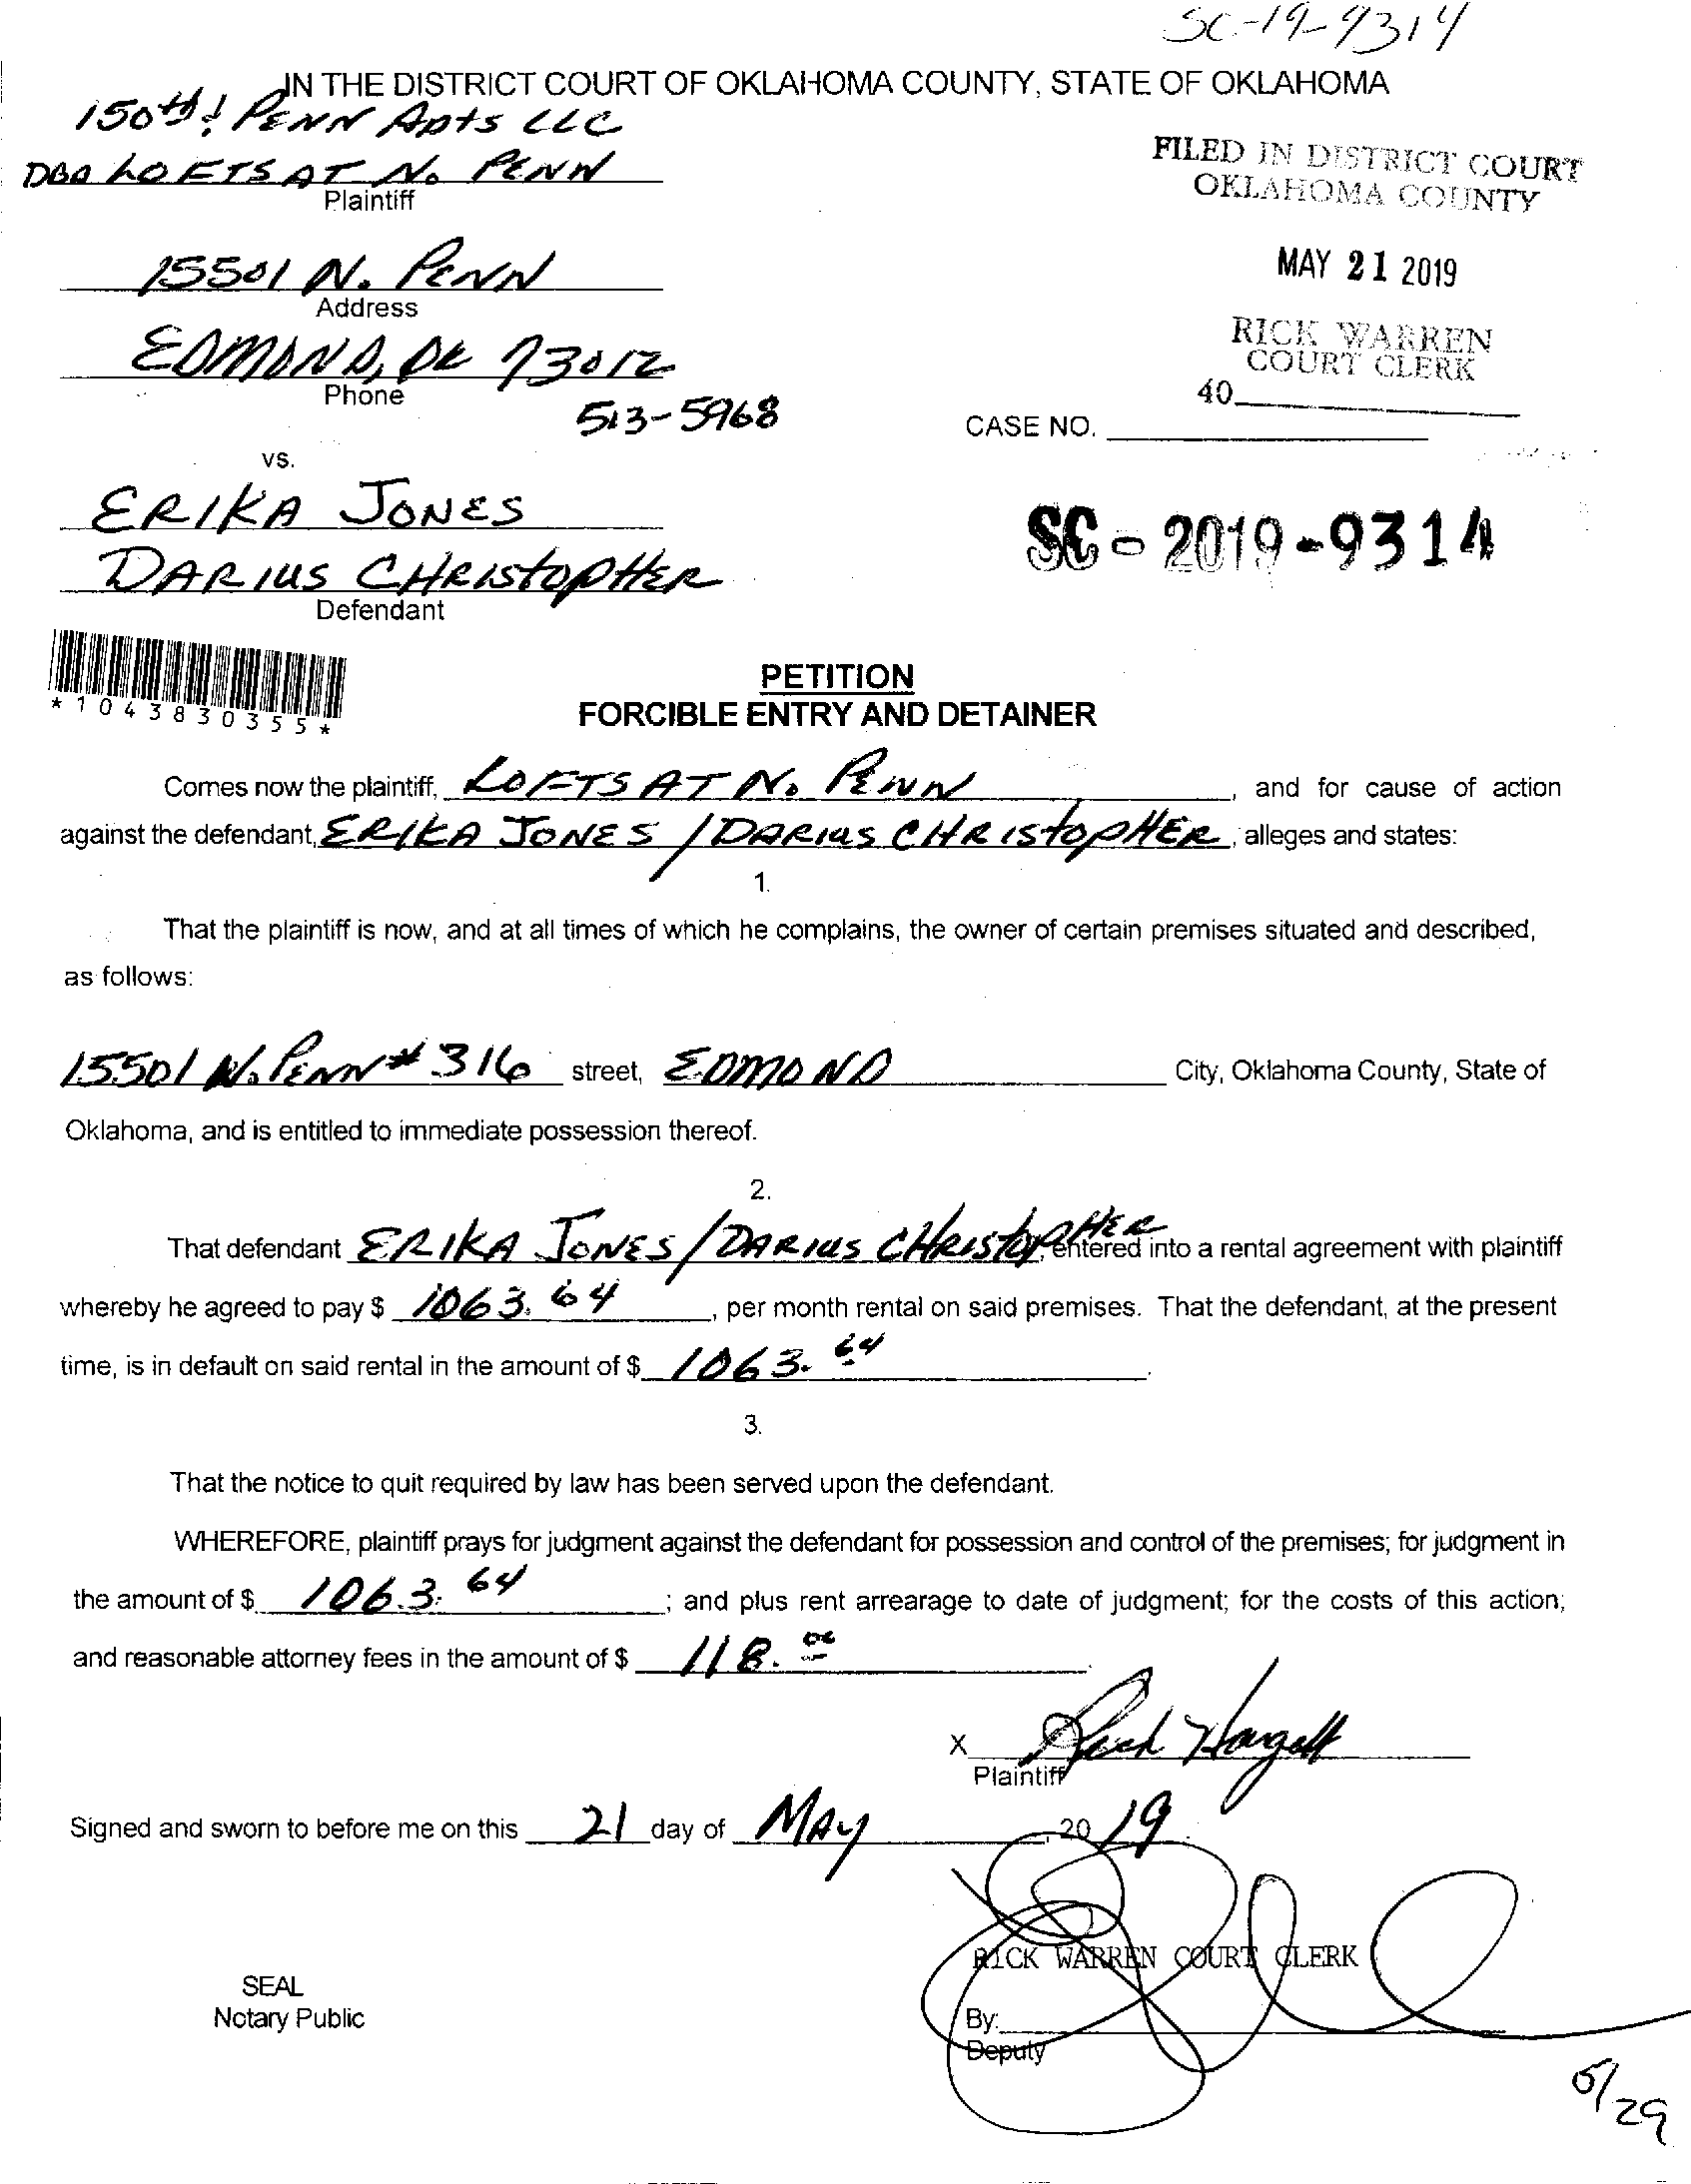 SC-19-9314
IN THE DISTRICT COURT OF OKLAHOMA COUNTY, STATE OF OKLAHOMA
150th! PENN Apts LLC
DBA LOFTS AT No. PENN
Plaintiff
FILED IN DISTRICT COURT
OKLAHOMA COUNTY
15501 N. PENN
Address
MAY 21 2019
EDMOND, OK 73012
Phone
513-5968
RICK WARREN
COURT CLERK
40
CASE NO.
vs.
ERIKA JONES
DARIUS CHRISTOPHER
Defendant
SC - 2019 - 9314
*1043830355*
PETITION
FORCIBLE ENTRY AND DETAINER
Comes now the plaintiff, LOFTS AT No. PENN, and for cause of action
against the defendant, ERIKA JONES / DARIUS CHRISTOPHER, alleges and states:
1.
That the plaintiff is now, and at all times of which he complains, the owner of certain premises situated and described,
as follows:
15501 N. PENN # 316 street, EDMOND City, Oklahoma County, State of
Oklahoma, and is entitled to immediate possession thereof.
2.
That defendant ERIKA JONES / DARIUS CHRISTOPHER, entered into a rental agreement with plaintiff
whereby he agreed to pay $ 1063.64, per month rental on said premises. That the defendant, at the present
time, is in default on said rental in the amount of $ 1063.64.
3.
That the notice to quit required by law has been served upon the defendant.
WHEREFORE, plaintiff prays for judgment against the defendant for possession and control of the premises; for judgment in
the amount of $ 1063.64; and plus rent arrearage to date of judgment; for the costs of this action;
and reasonable attorney fees in the amount of $ 118.00.
X
Plaintiff
Signed and sworn to before me on this 21 day of MAY, 2019
RICK WARREN COURT CLERK
SEAL
Notary Public
By:
Deputy
5/29